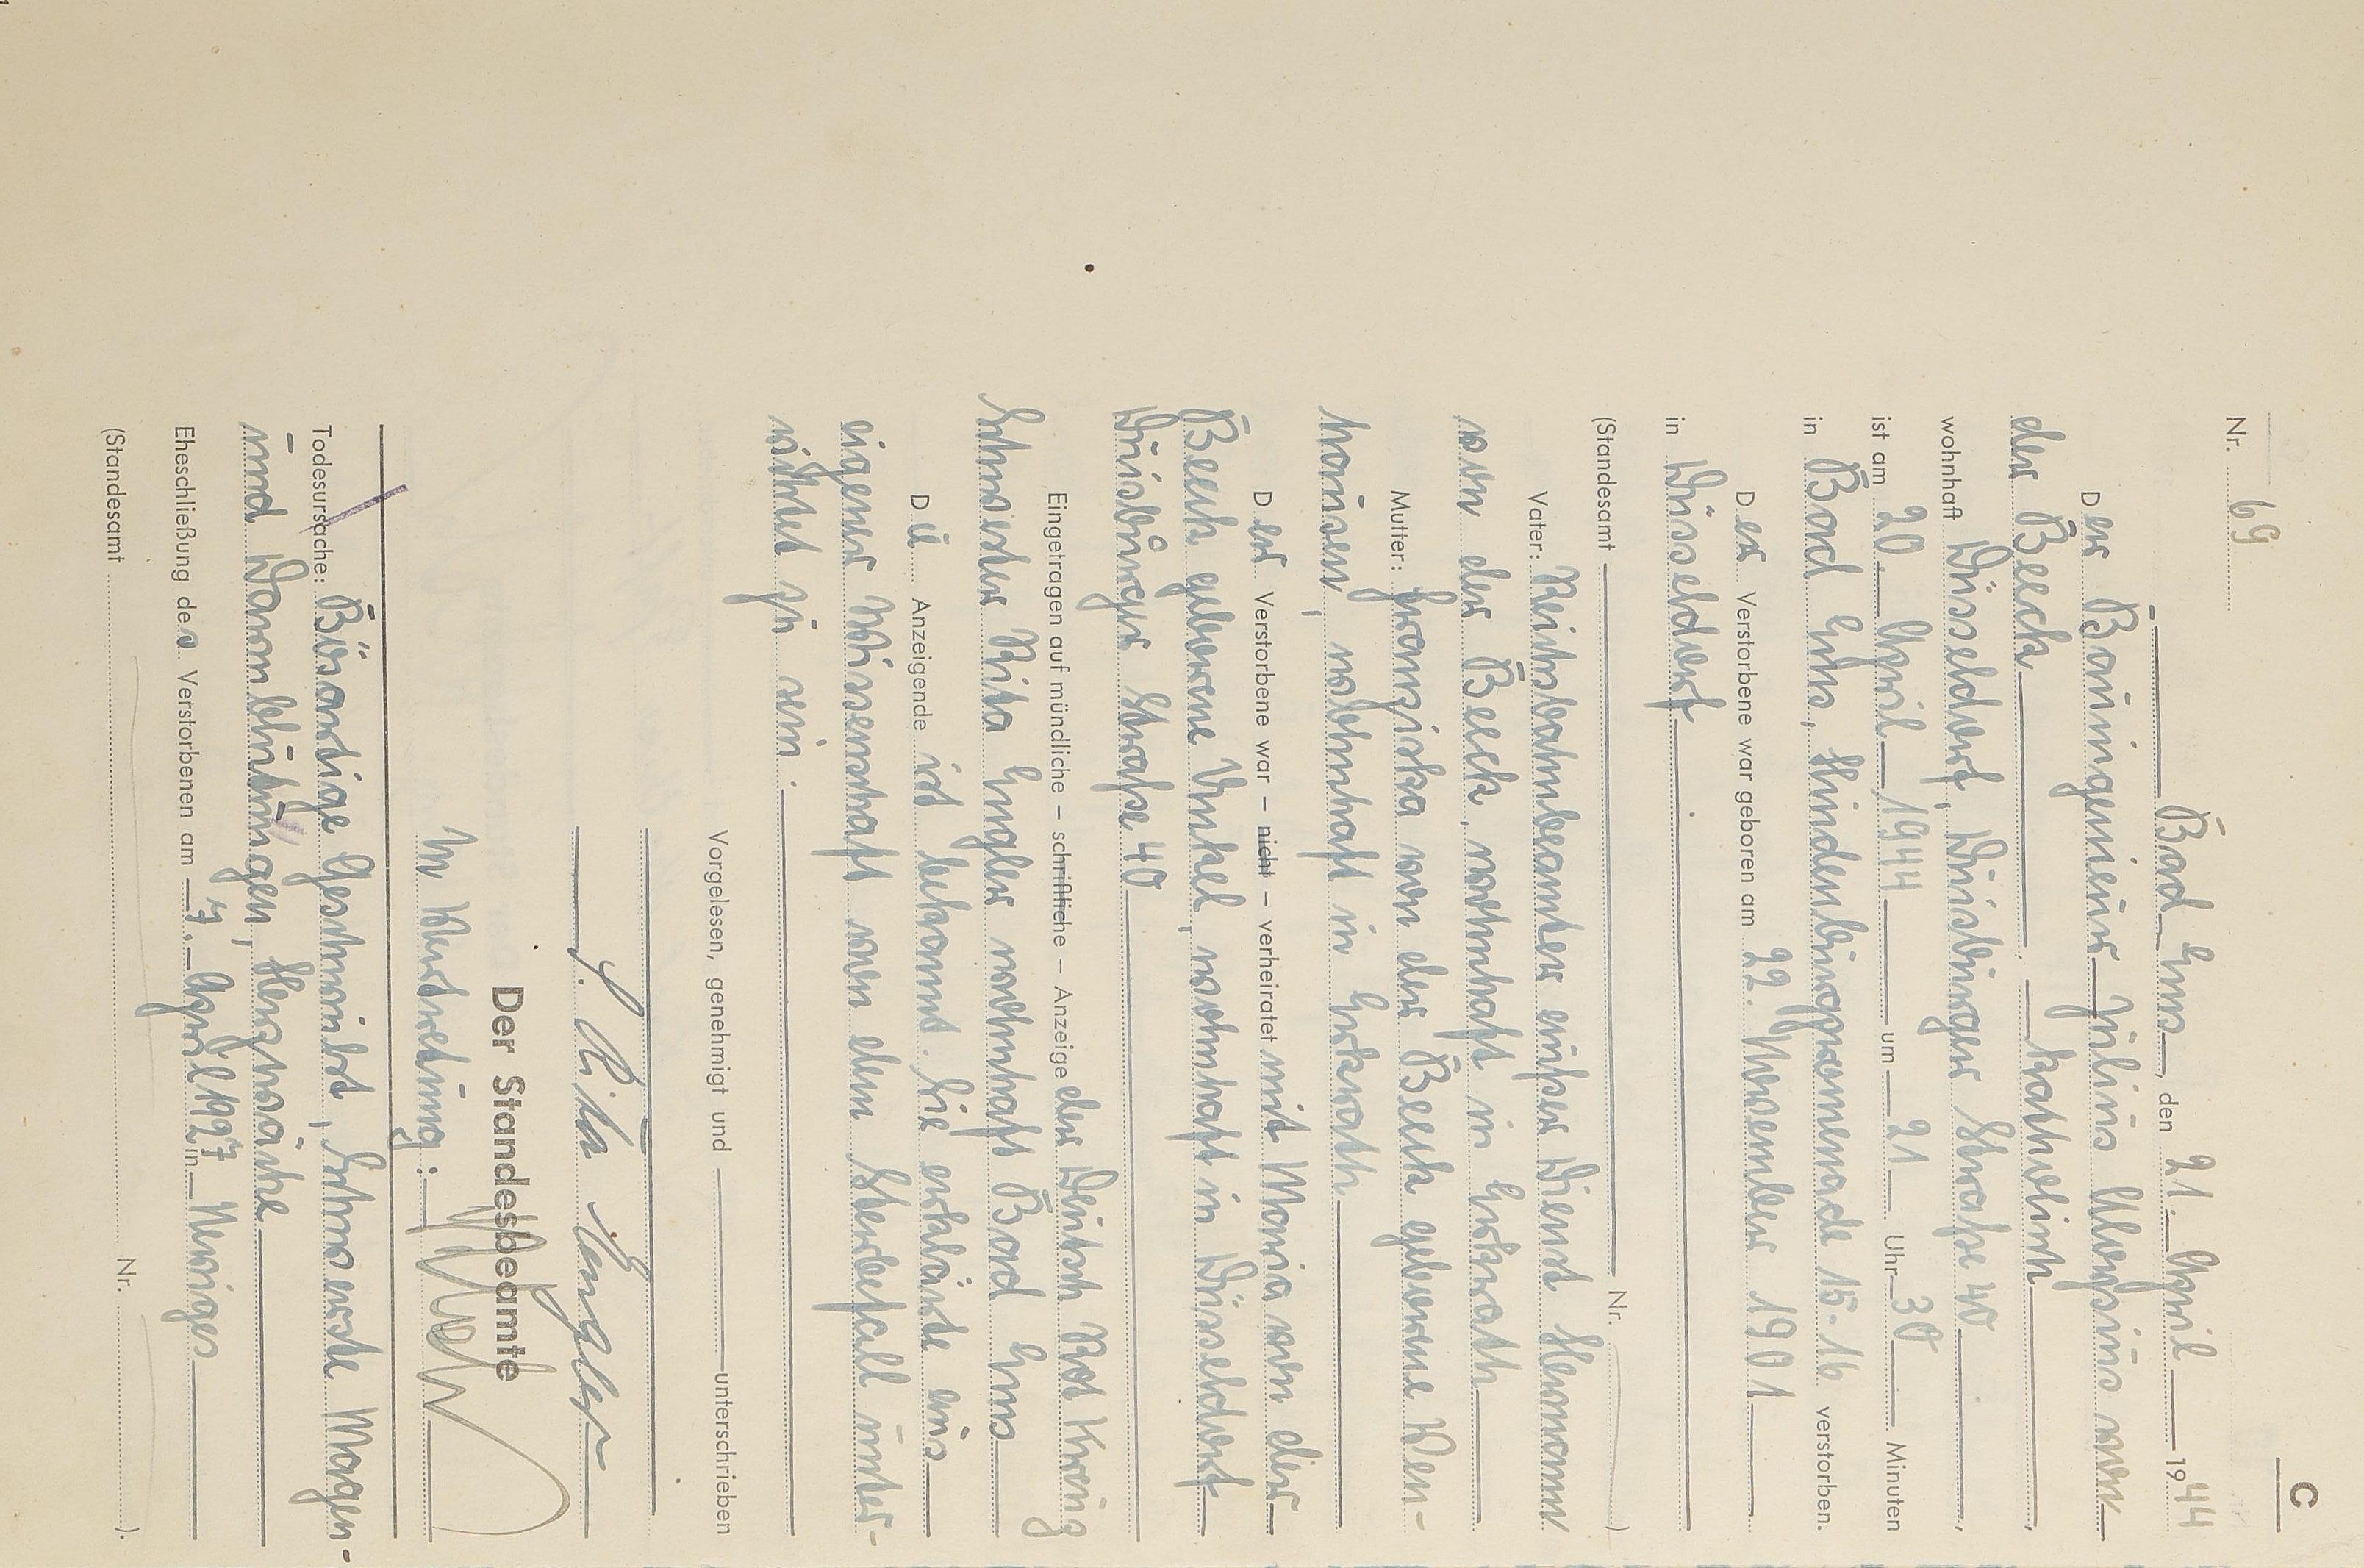 C
Nr. 69
Bad Ems, den 21. April 1944
Der Bauingenieur Julius Aloysius von
der Beeck, katholisch,
wohnhaft Düsseldorf, Duisburger Straße 40,
ist am 20. April 1944 um 21 Uhr 30 Minuten
in Bad Ems, Hindenburgpromenade 15-16 verstorben.
Der Verstorbene war geboren am 22. November 1901
in Düsseldorf.
(Standesamt Nr. )
Vater: Reichsbahnbeamter außer Dienst Hermann
von der Beeck, wohnhaft in Erkrath
Mutter: Franziska von der Beeck geborene Wen-
hausen, wohnhaft in Erkrath
Der Verstorbene war – nicht – verheiratet mit Maria von der
Beeck geborene Unkel, wohnhaft in Düsseldorf
Duisburger Straße 40
Eingetragen auf mündliche – schriftliche – Anzeige der Deutsch Rot Kreuz
Schwester Rita Engler wohnhaft Bad Ems
Die Anzeigende ist bekannt. Sie erklärte aus
eigener Wissenschaft von dem Sterbefall unter-
richtet zu sein.
Vorgelesen, genehmigt und unterschrieben
S. Rita Engler
Der Standesbeamte
In Vertretung:
Todesursache: Bösartige Geschwulst, Schwerste Magen-
und Darmblutungen, Herzschwäche
Eheschließung des Verstorbenen am 7. April 1927 in Neviges
(Standesamt Nr. ).